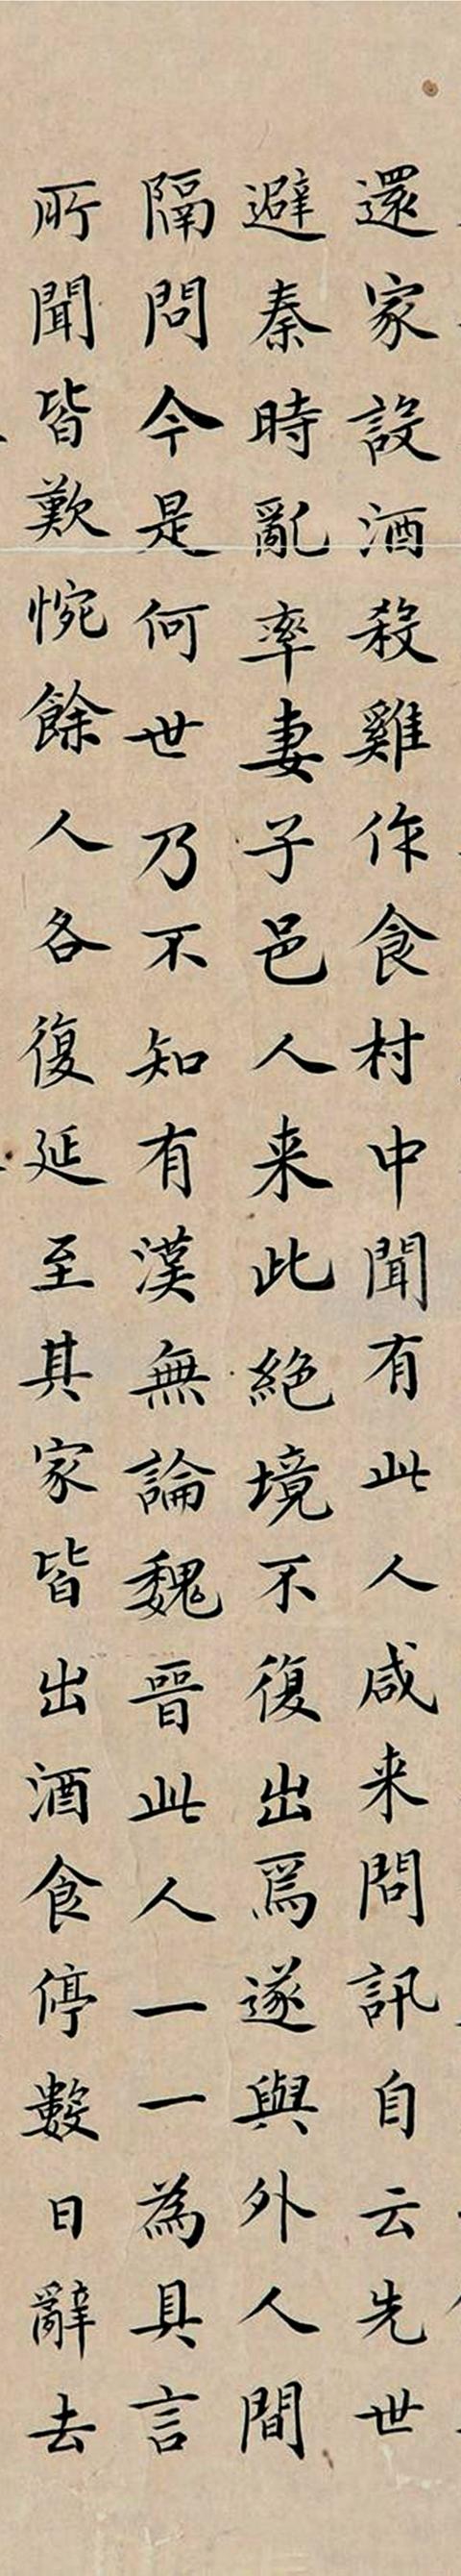 還家設酒殺雞作食村中聞有此人咸来問訊自云先世
避秦時亂率妻子邑人来此絶境不復出焉遂與外人間
隔問今是何世乃不知有漢無論魏晉此人一一為具言
所聞皆歎惋餘人各復延至其家皆出酒食停數日辭去